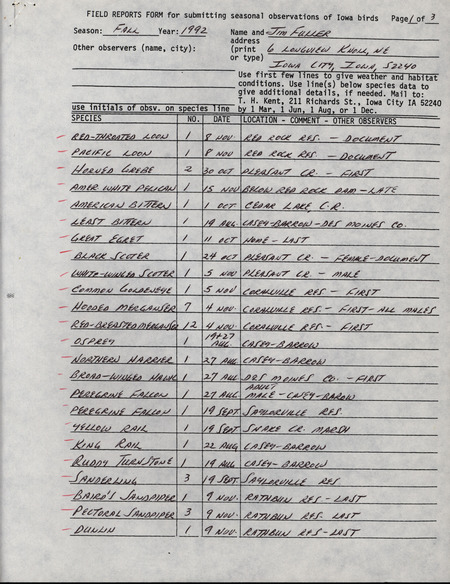 FIELD REPORTS FORM for submitting seasonal observations of Iowa birds Page 1 of 3
Season: FALL Year: 1992 Name and JIM FULLER
address
Other observers (name, city): (print 6 LONGVIEW KNOLL, NE
or type) IOWA CITY, IOWA, 52240
Use first few lines to give weather and habitat
conditions. Use line(s) below species data to
give additional details, if needed. Mail to:
T. H. Kent, 211 Richards St., Iowa City IA 52240
use initials of obsv. on species line by 1 Mar, 1 Jun, 1 Aug, or 1 Dec.
SPECIES NO. DATE LOCATION - COMMENT - OTHER OBSERVERS
RED-THROATED LOON 1 8 NOV RED ROCK RES. - DOCUMENT
PACIFIC LOON 1 8 NOV RED ROCK RES. - DOCUMENT
HORNED GREBE 2 30 OCT PLEASANT CR. - FIRST
AMER WHITE PELICAN 1 15 NOV BELOW RED ROCK DAM - LATE
AMERICAN BITTERN 1 1 OCT CEDAR LAKE, C.R.
LEAST BITTERN 1 19 AUG CASEY-BARROW-DES MOINES CO.
GREAT EGRET 1 11 OCT HOME - LAST
BLACK SCOTER 1 24 OCT PLEASANT CR. - FEMALE-DOCUMENT
WHITE-WINGED SCOTER 1 5 NOV PLEASANT CR. - MALE
COMMON GOLDENEYE 1 5 NOV CORALVILLE RES - FIRST
HOODED MERGANSER 7 4 NOV CORALVILLE RES - FIRST - ALL MALES
RED-BREASTED MERGANSER 12 4 NOV CORALVILLE RES - FIRST
OSPREY 1 19+27 AUG CASEY-BARROW
NORTHERN HARRIER 1 27 AUG CASEY-BARROW
BROAD-WINGED HAWK 1 27 AUG DES MOINES CO. - FIRST
PEREGRINE FALCON 1 27 AUG ADULT MALE - CASEY-BAROW
PEREGRINE FALCON 1 19 SEPT SAYLORVILLE RES.
YELLOW RAIL 1 19 SEPT SNAKE CR. MARSH
KING RAIL 1 22 AUG CASEY-BARROW
RUDDY TURNSTONE 1 19 AUG CASEY-BARROW
SANDERLING 3 19 SEPT SAYLORVILLE RES
BAIRD'S SANDPIPER 1 9 NOV. RATHBUN RES - LAST
PECTORAL SANDPIPER 3 9 NOV. RATHBUN RES. LAST
DUNLIN 1 9 NOV. RATHBUN RES-LAST